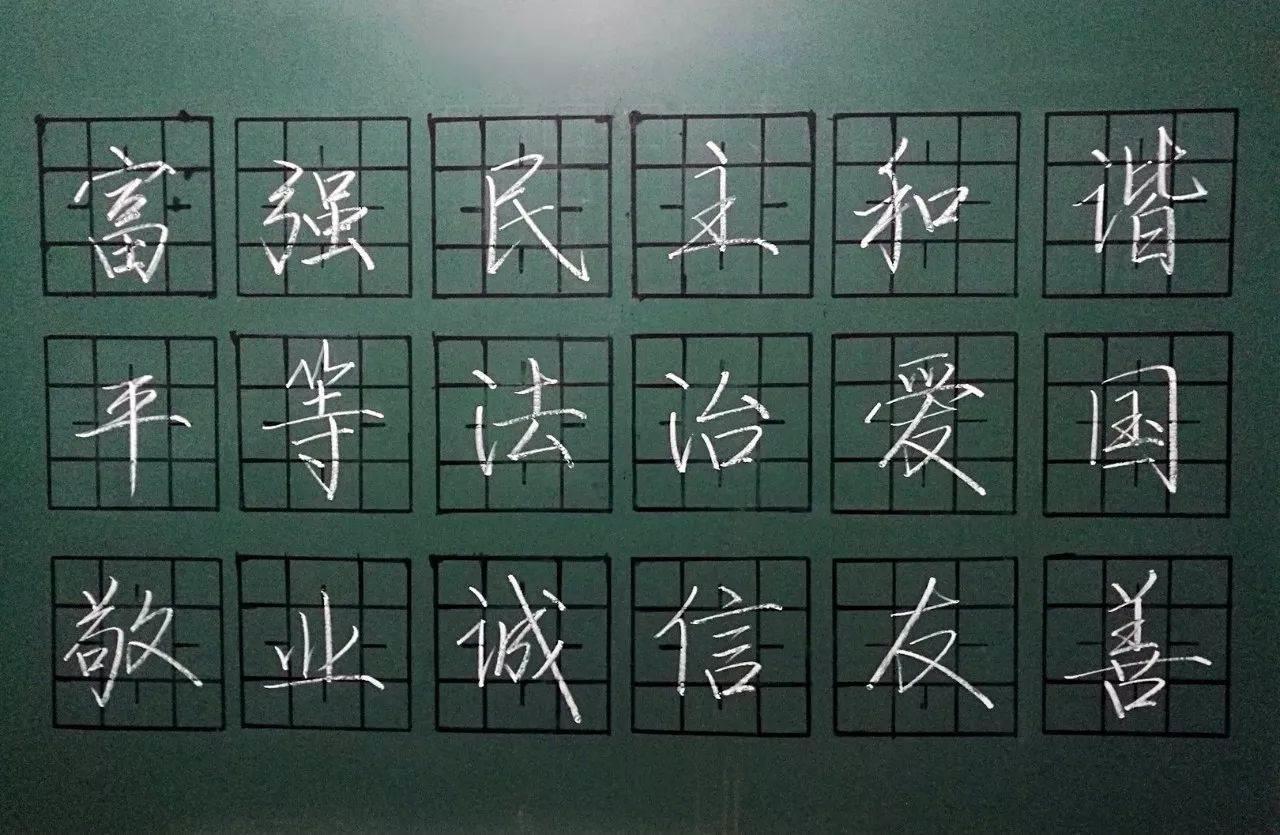 富强民主和谐
平等法治爱国
敬业诚信友善